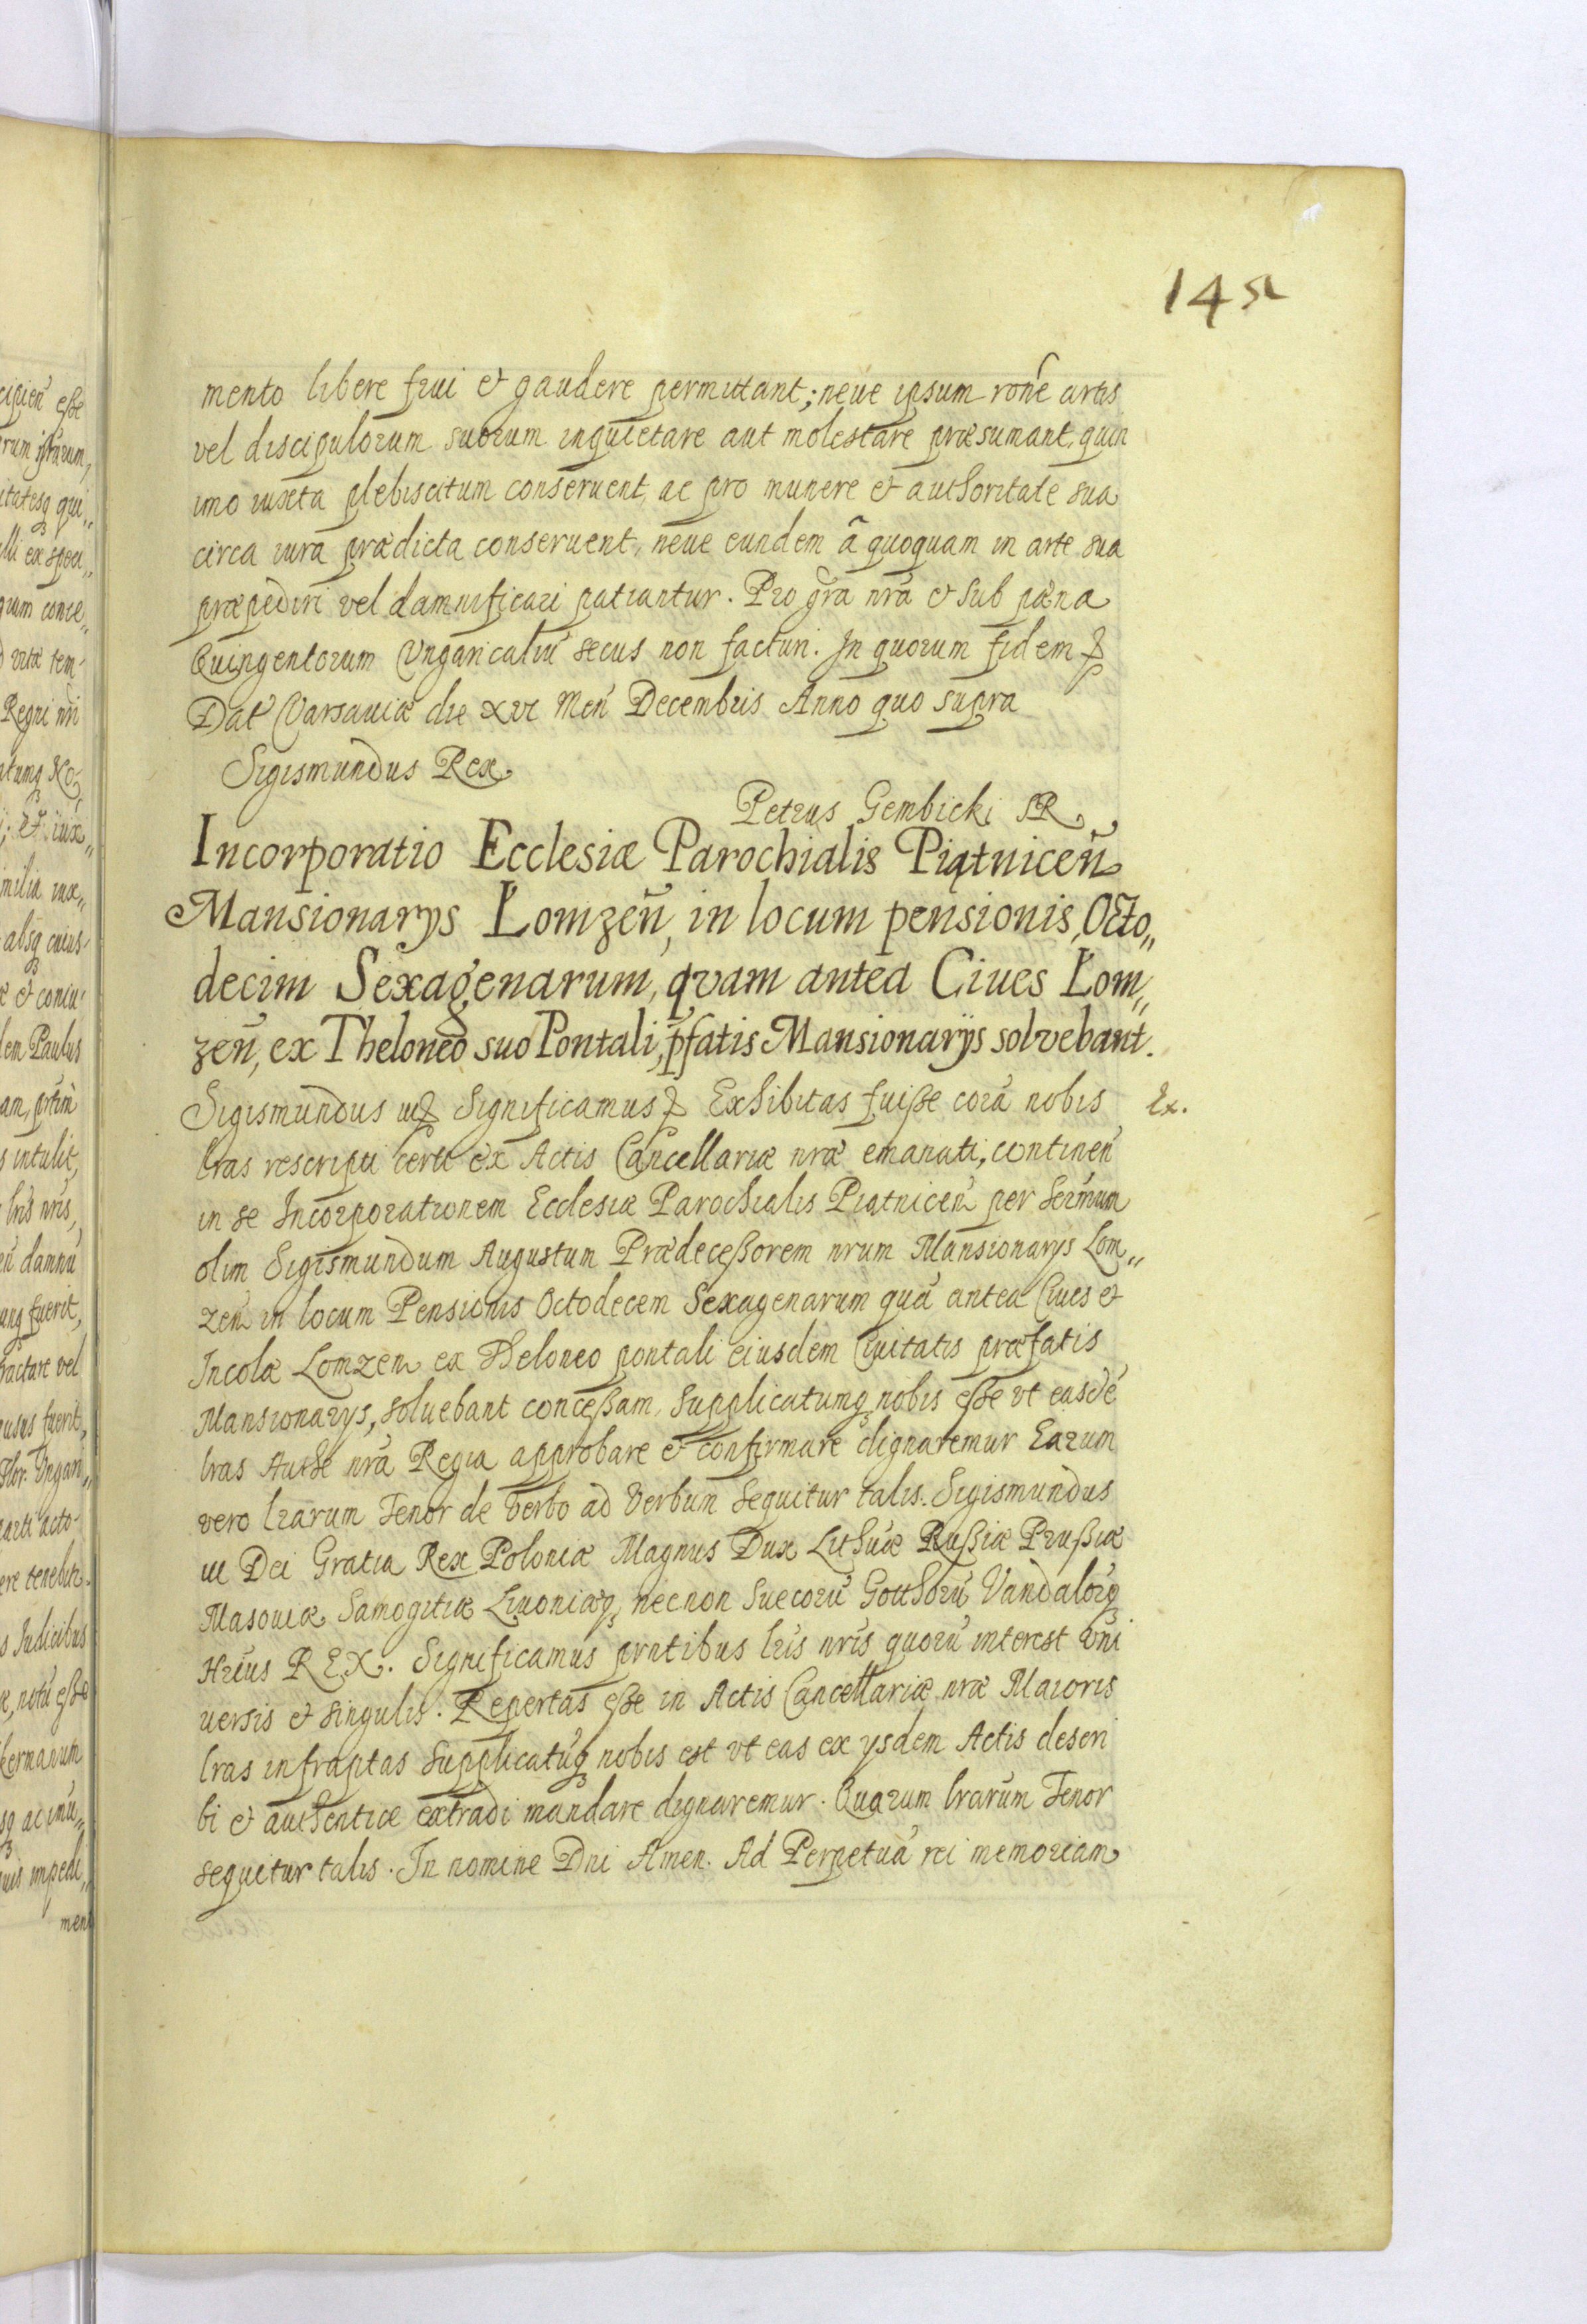 145
mento libere frui et gaudere permittant; neue ipsum rone artis
vel discipulorum suorum inquietare aut molestare præsumant, quin
imo iuxta plebiscitum conseruent, ac pro munere et authoritate sua
circa iura prædicta conseruent, neue eundem à quoquam in arte sua
præpediri vel damnificari patiantur. Pro gra nra et sub pæna
Quingentorum Vngaricaliū secus non facturi. In quorum fidem
Dat Varsauiæ die xvi Men Decembris Anno quo supra
Sigismundus Rex
Petrus Gembicki SR
Incorporatio Ecclesiæ Parochialis Piątniceñ
Mansionarys Łomzeñ, in locum pensionis, Octo„
decim Sexagenarum, qvam antea Ciues Łom„
zeñ, ex Theloneo suo Pontali, p̃fatis Mansionarijs solvebant.
Sigismundus III Significamus Exhibitas fuiße corā nobis
Ex.
lras rescripti certi ex Actis Cancellariæ nræ emanati, continen
in se Incorporationem Ecclesiæ Parochialis Piatnicen per Sermum
olim Sigismundum Augustum Prædeceßorem nrum Mansionarys Lom„
zen in locum Pensionis Octodecem Sexagenarum quā antea Ciues et
Incolæ Lomzen ex Theloneo pontali eiusdem Ciuitatis præfatis
Mansionarys, soluebant conceßam, Supplicatumq nobis eße vt easdē
lras Authe nra Regia approbare et confirmare dignaremur Earum
vero lrarum Tenor de verbo ad Verbum Sequitur talis. Sigismundus
III Dei Gratia Rex Poloniæ Magnus Dux Lithuæ Rußiæ Prußiæ
Masouiæ Samogitiæ Liuoniæq, necnon Suecorū Gotthorū Vandalorūq
Hrius REX. Significamus prntibus lris nris quorū interest vni
uersis et singulis. Repertas eße in Actis Cancellariæ nræ Maioris
lras infraptas Supplicatūq nobis est vt eas ex ysdem Actis descri
bi et authentice extradi mandare dignaremur. Quarum lrarum Tenor
sequitur talis. In nomine Dni Amen. Ad Perpetuā rei memoriam